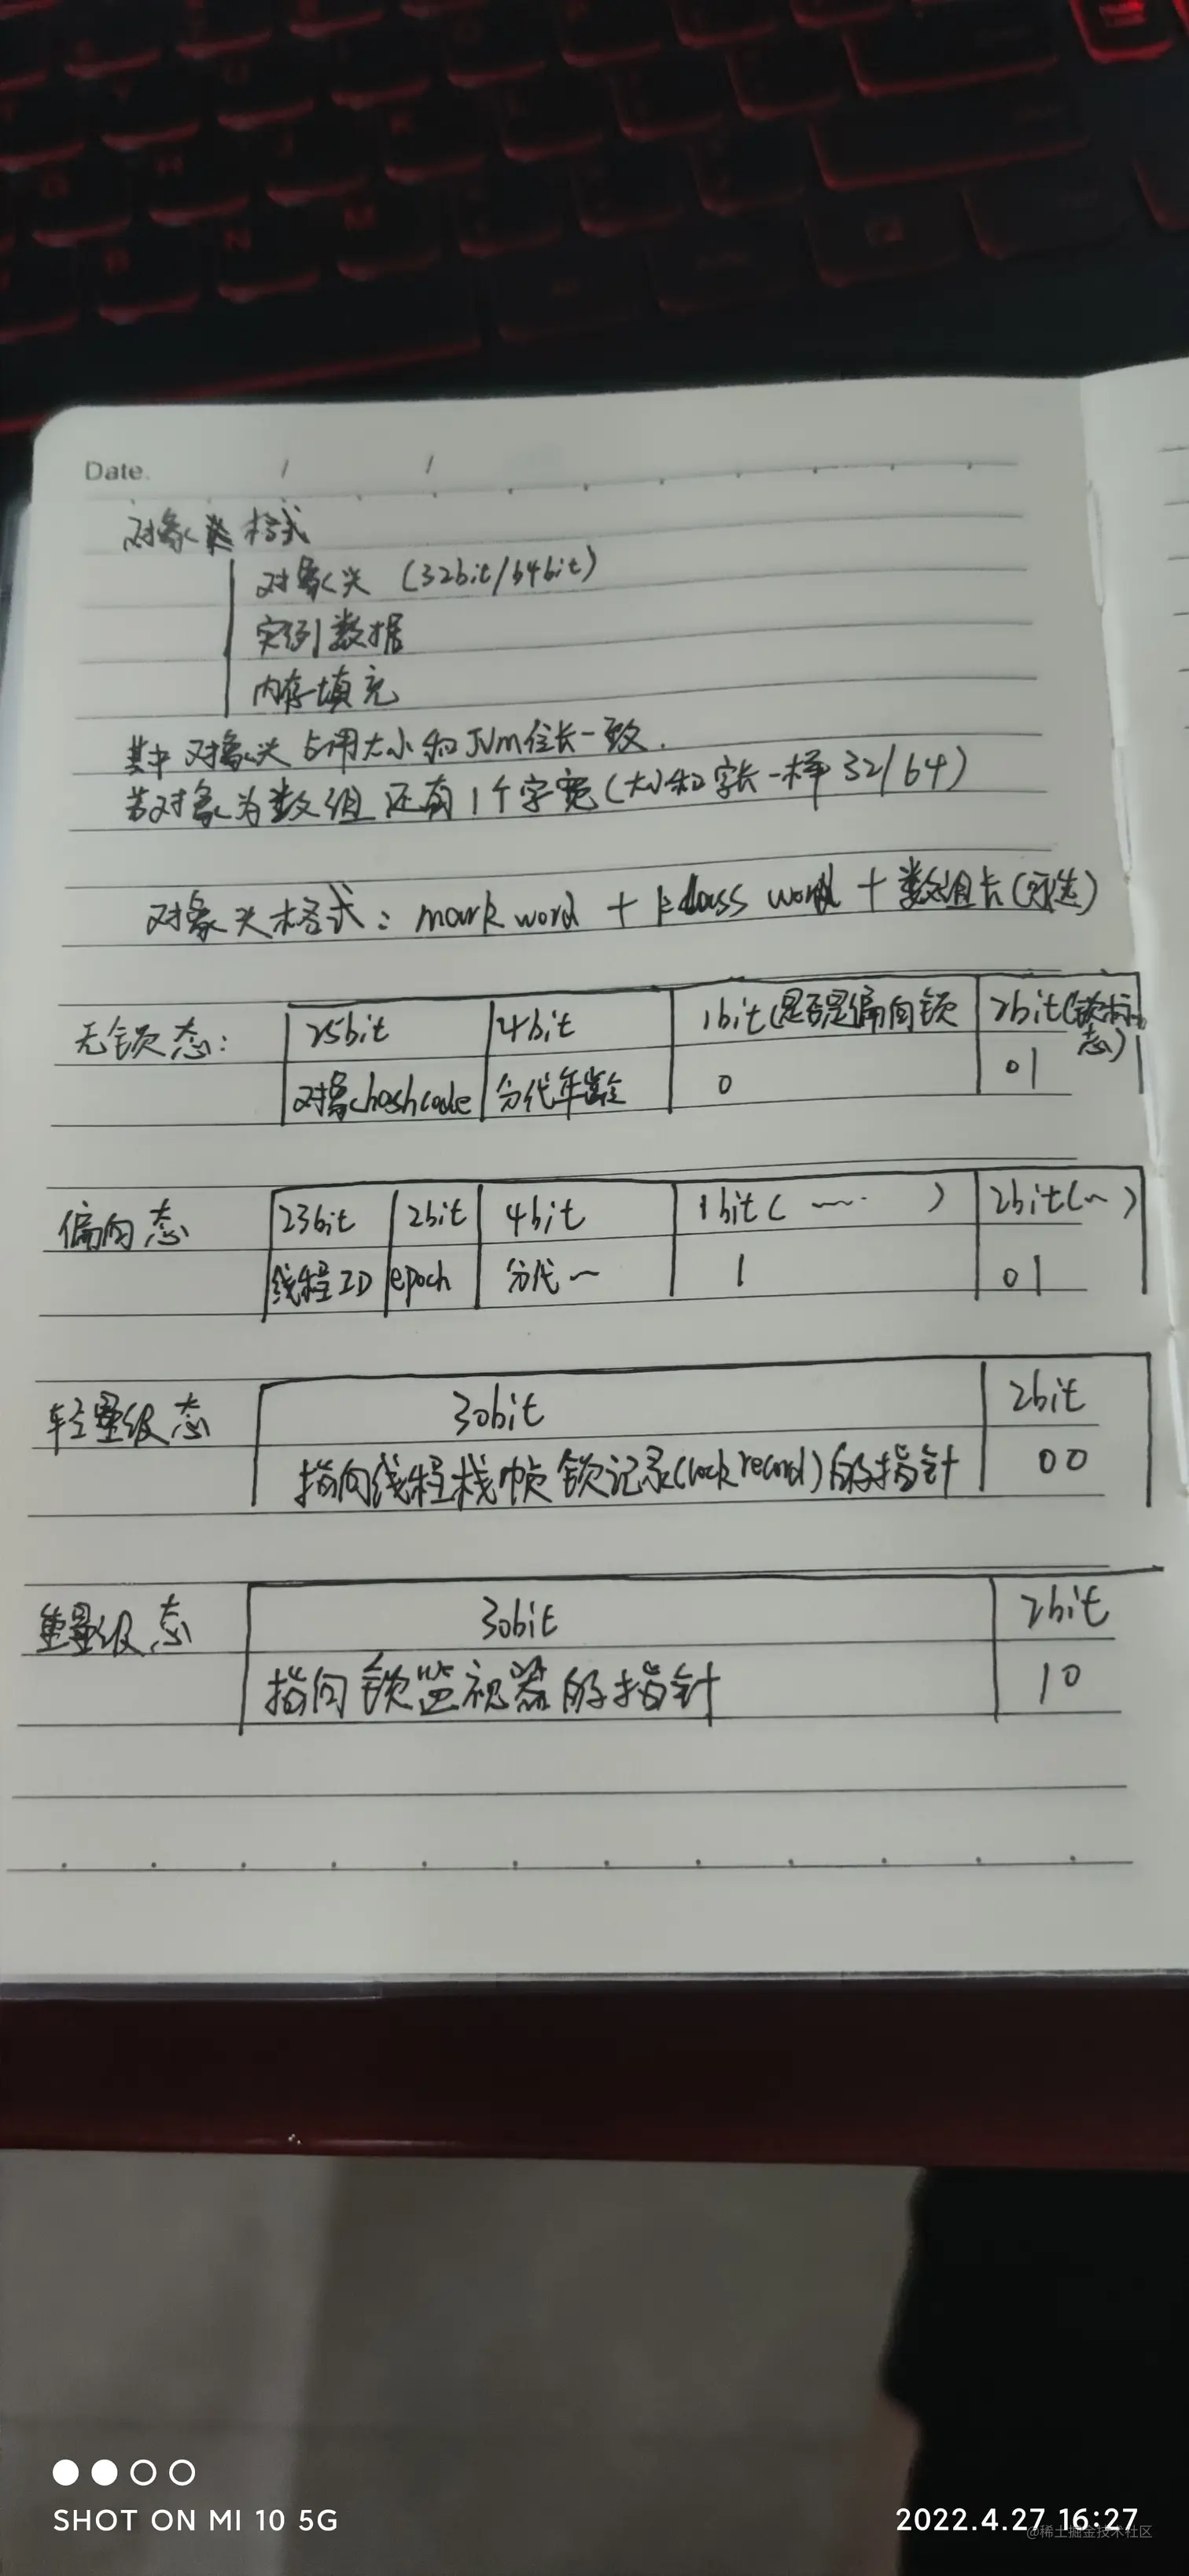 Date.
对象 格式
对象头 (32bit/64bit)
实例数据
内存填充
其中 对象头 占用大小和JVM位长一致.
若对象为数组 还有1个字宽(大小和字长一样 32/64)
对象头格式: mark word + klass word + 数组长(可选)
无锁态: 25bit 4bit 1bit(是否是偏向锁 2bit(锁标志)
对象hashcode 分代年龄 0 01
偏向态 23bit 2bit 4bit 1bit( ) 2bit(~)
线程ID epoch 分代~ 1 01
轻量级态 30bit 2bit
指向线程栈帧锁记录(lock record)的指针 00
重量级态 30bit 2bit
指向锁监视器的指针 10
SHOT ON MI 10 5G
2022.4.27 16:27
@稀土掘金技术社区